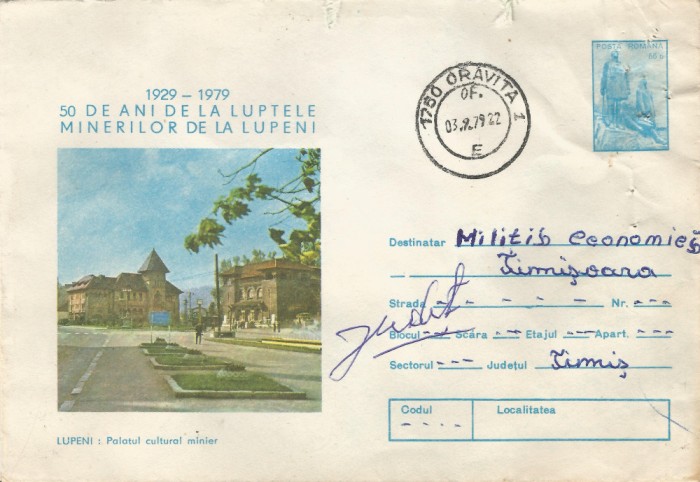 1929 - 1979
50 DE ANI DE LA LUPTELE
MINERILOR DE LA LUPENI
LUPENI : Palatul cultural minier
1750 ORĂVIȚA 1
OF.
03.9.79.22
E
POȘTA ROMÂNĂ
55 b
Destinatar Militia economică
Timișoara
Strada - - - - - Nr. - - -
Blocul - - - Scara - - - Etajul - - - Apart. - - -
Sectorul - - - Județul Timiș
Judet
Codul Localitatea
- - - -